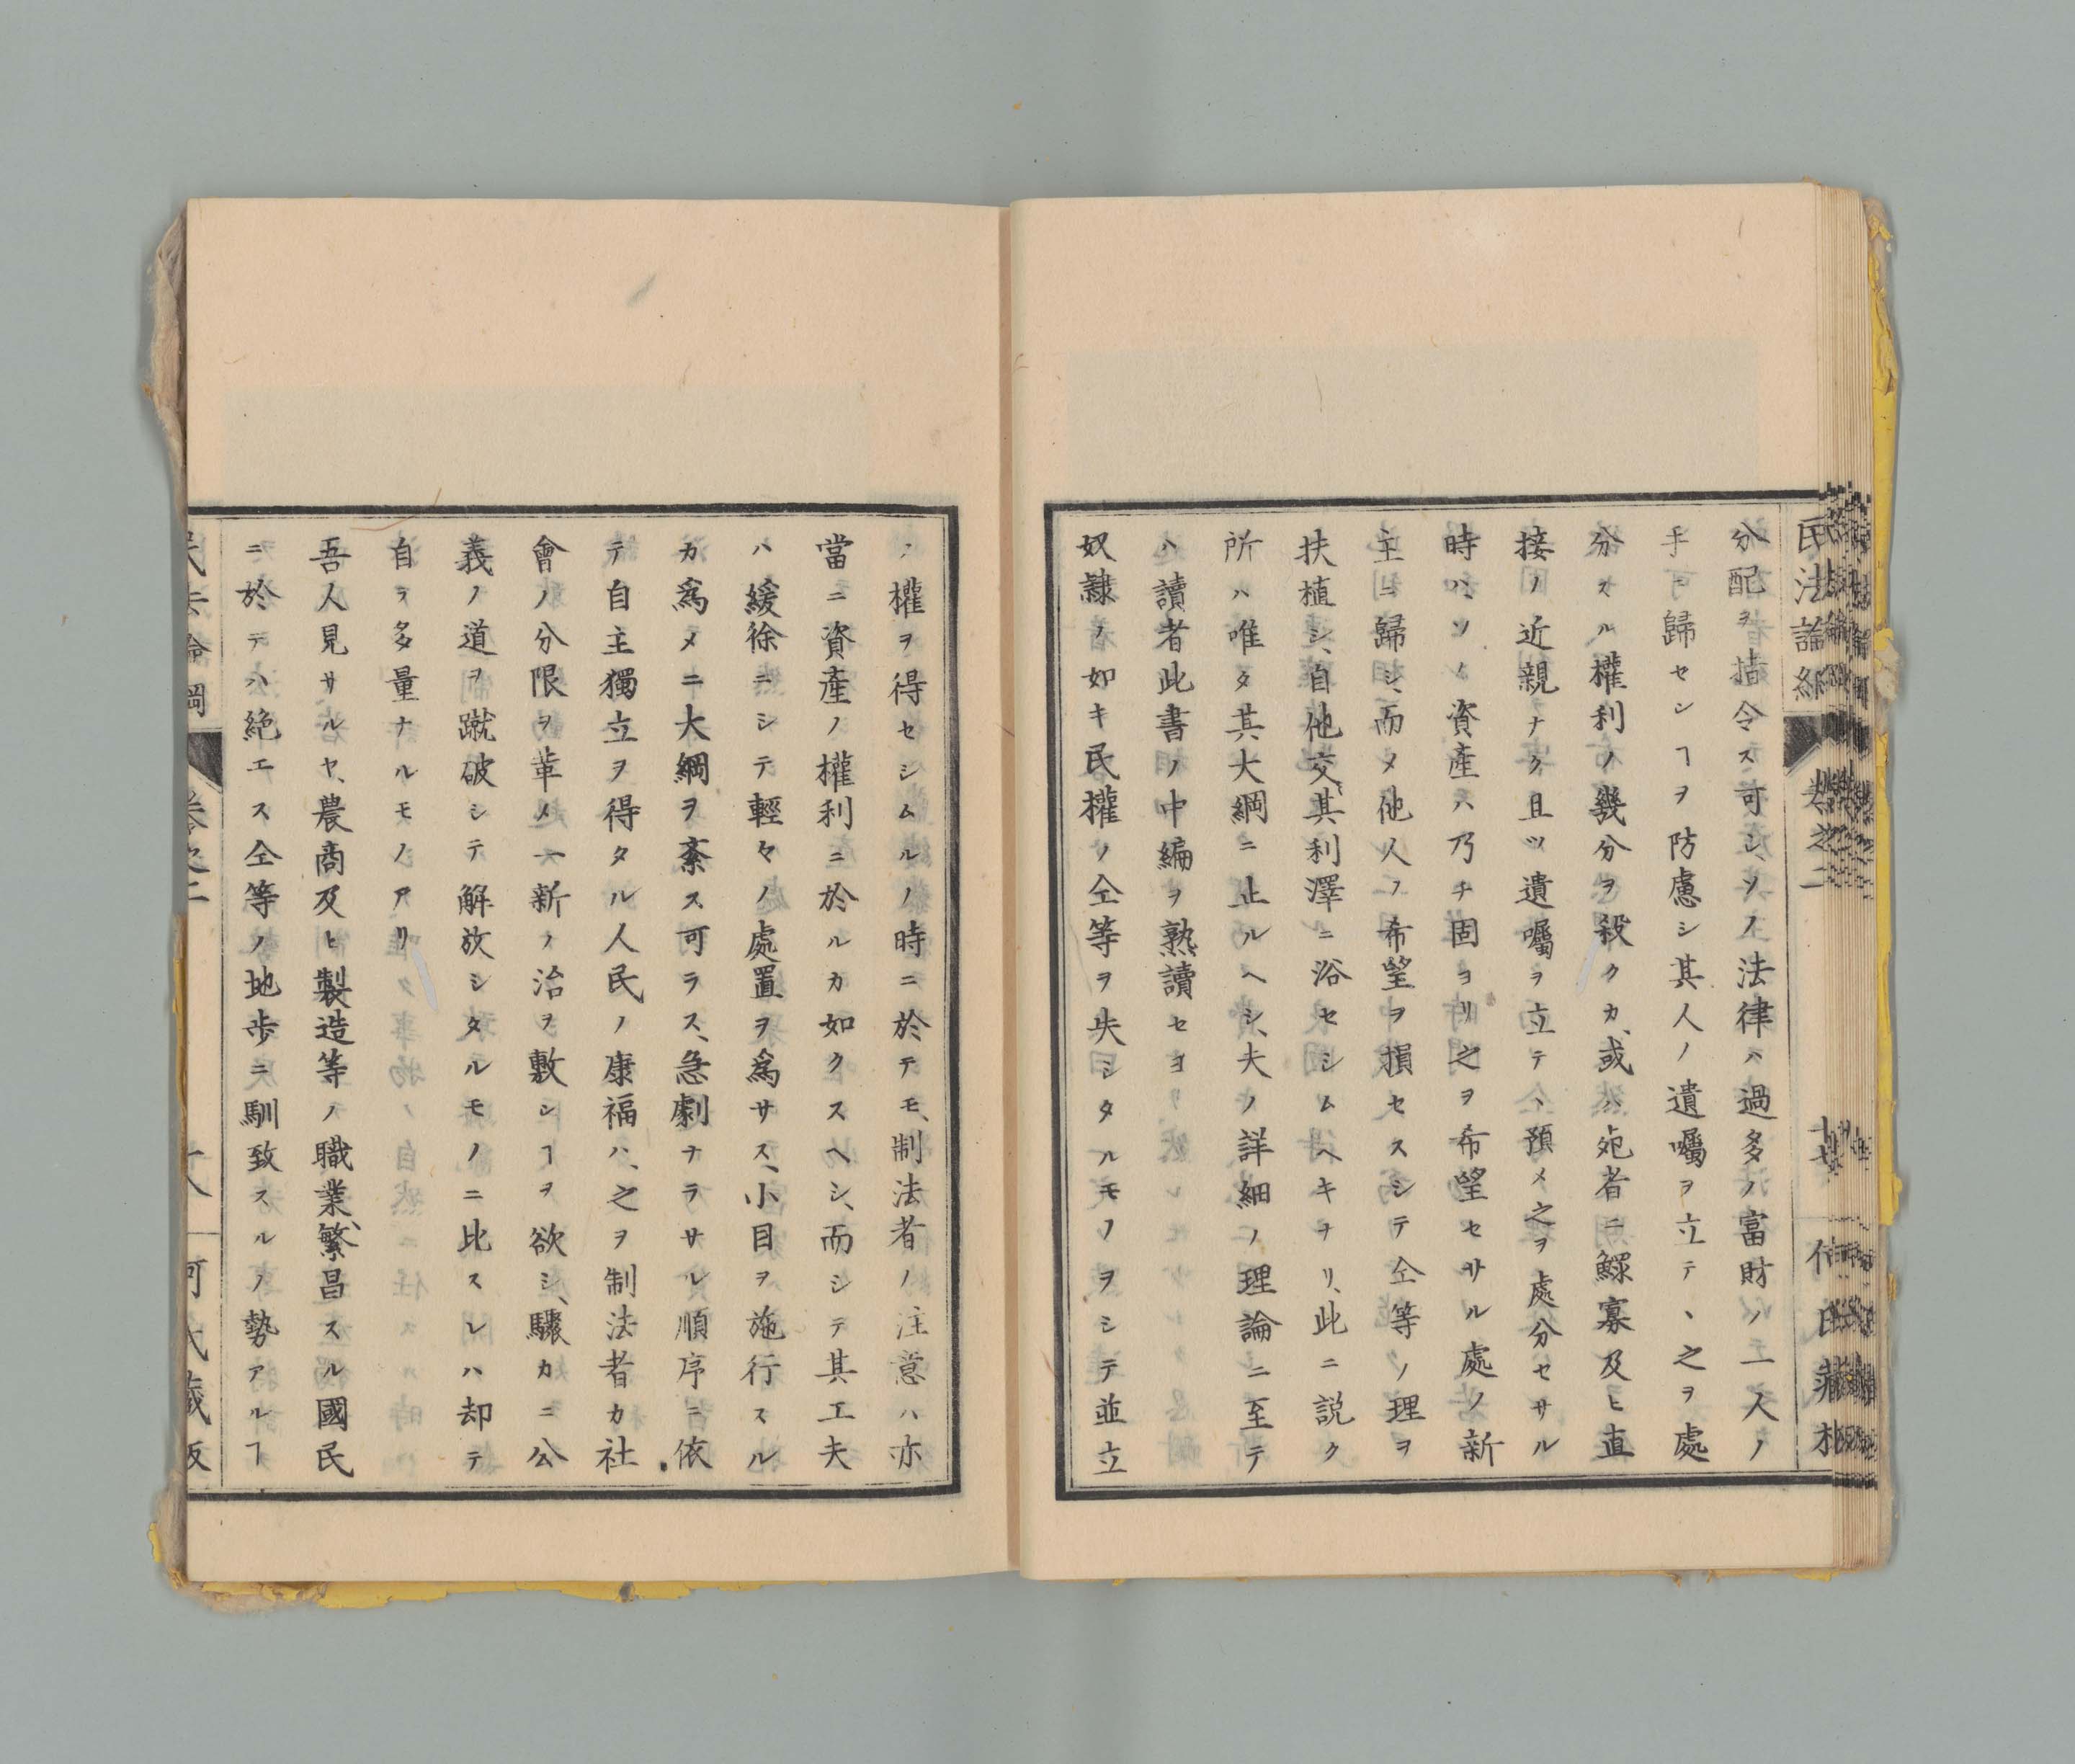 民法論綱
卷之二
十七
何氏藏板
分配ヲ指令ス可シ、ソノ法律ハ過多ノ富財ノ一人ノ
手ニ歸センヿヲ防慮シ其人ノ遺囑ヲ立テ、之ヲ處
分スル權利ノ幾分ヲ殺クカ、或ハ死者ニ鰥寡及ヒ直
接ノ近親ナク且ツ遺囑ヲ立テ、預メ之ヲ處分セサル
時ハ、ソノ資產ハ乃チ固ヨリ之ヲ希望セサル處ノ新
主ニ歸シ、而メ他人ノ希望ヲ損セスシテ仝等ノ理ヲ
扶植シ、自他交、其利澤ニ浴セシムヘキナリ、此ニ説ク
所ハ唯タ其大綱ニ止ルヘシ、夫ノ詳細ノ理論ニ至テ
ハ讀者此書ノ中編ヲ熟讀セヨ
奴隷ノ如キ民權ノ仝等ヲ失シタルモノヲシテ並立
ノ權ヲ得セシムルノ時ニ於テモ、制法者ノ注意ハ亦
當ニ資產ノ權利ニ於ルカ如クスヘシ、而シテ其工夫
ハ緩徐ニシテ輕々ノ處置ヲ爲サス、小目ヲ施行スル
カ爲メニ大綱ヲ紊ス可ラス、急劇ナラサル順序ニ依
テ自主獨立ヲ得タル人民ノ康福ハ、之ヲ制法者カ社
會ノ分限ヲ革メ一新ノ治ヲ敷ンヿヲ欲シ、驟カニ公
義ノ道ヲ蹴破シテ解放シタルモノニ比スレハ却テ
自ラ多量ナルモノアリ
吾人見サルヤ、農商及ヒ製造等ノ職業繁昌スル國民
ニ於テハ絶エス仝等ノ地歩ニ馴致スルノ勢アルヿ
民法論綱
卷之二
十八
何氏藏板